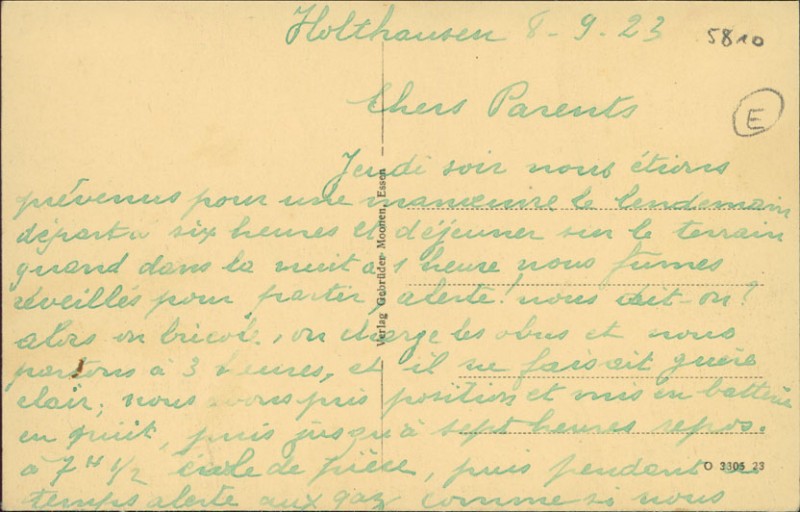 Holthausen 8-9-23
5810
E
Chers Parents
Jeudi soir nous étions
prévenus pour une manœuvre le lendemain
départ à six heures et déjeuner sur le terrain
quand dans la nuit à 1 heure nous fûmes
réveillés pour partir, alerte! nous dit-on?
alors on bricole, on charge les obus et nous
partons à 3 heures, et il ne faisait guère
clair; nous avons pris position et mis en batterie
en nuit, puis jusqu'à sept heures repos.
à 7H 1/2 école de pièce, puis pendant
temps alerte aux gaz comme si nous
Verlag Gebrüder Moonen, Essen
O 3305 23